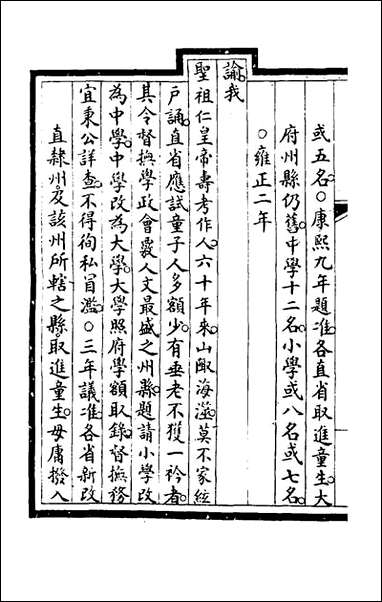 或五名○康熙九年題准各直省取進童生大
府州縣仍舊中學十二名小學或八名或七名
○雍正二年
諭我
聖祖仁皇帝壽考作人六十年來山陬海澨莫不家絃
户誦直省應試童子人多額少有垂老不獲一衿者
其令督撫學政會覈人文最盛之州縣題請小學改
為中學中學改為大學大學照府學額取錄督撫務
宜秉公詳查不得徇私冒濫○三年議准各省新改
直隸州及該州所轄之縣取進童生毋庸撥入